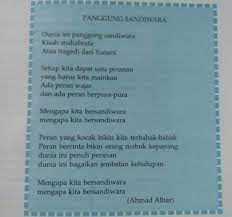 PANGGUNG SANDIWARA
Dunia ini panggung sandiwara
Kisah mahabrata
Atau tragedi dari Yunani
Setiap kita dapat satu peranan
yang harus kita mainkan
Ada peran wajar
dan ada peran berpura-pura
Mengapa kita bersandiwara
mengapa kita bersandiwara
Peran yang kocak bikin kita terbahak-bahak
Peran bercinta bikin orang mabuk kepayang
dunia ini penuh peranan
dunia ini bagaikan jembatan kehidupan
Mengapa kita bersandiwara
mengapa kita bersandiwara
(Ahmad Albar)